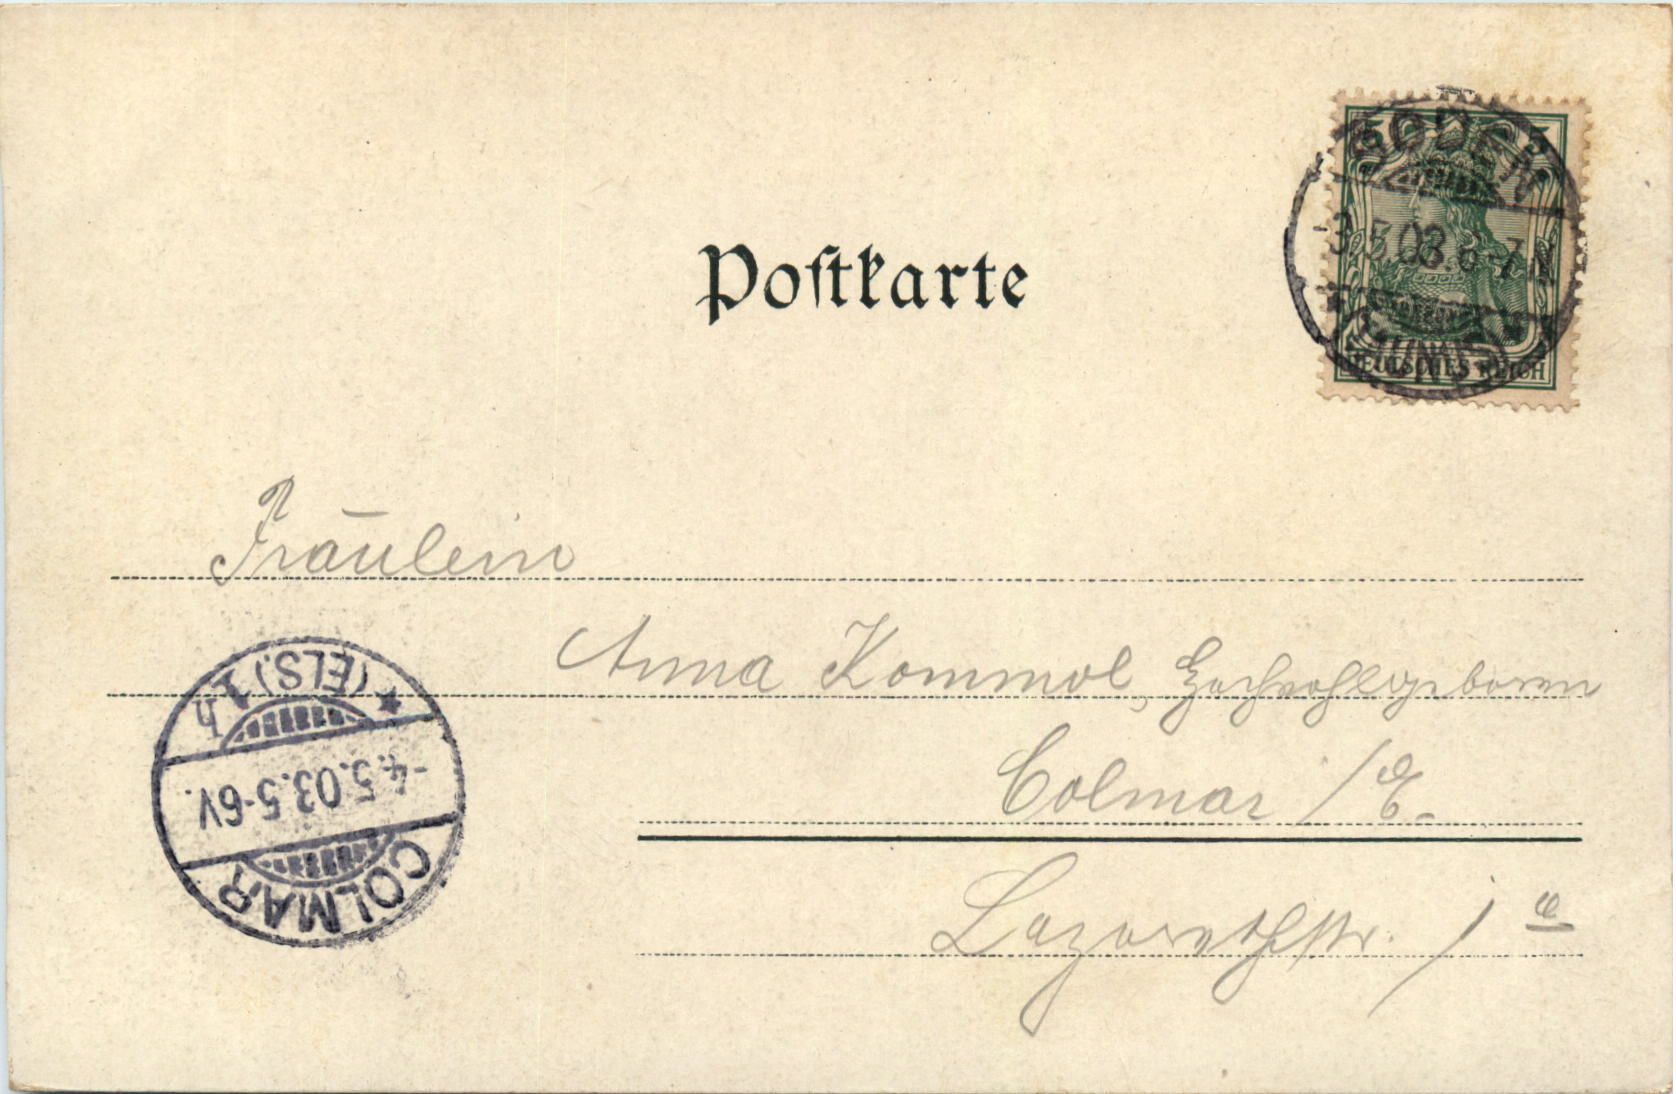 5 5
SODEN
3.5.03.6-7N
(TAUNUS)
DEUTSCHES REICH
Postkarte
Fräulein
Anna Kommol, Hochwohlgeboren
Colmar i/E.
Lazarethstr. 1 a
COLMAR
-4.5.03.5-6V.
* (ELS.) 1 h